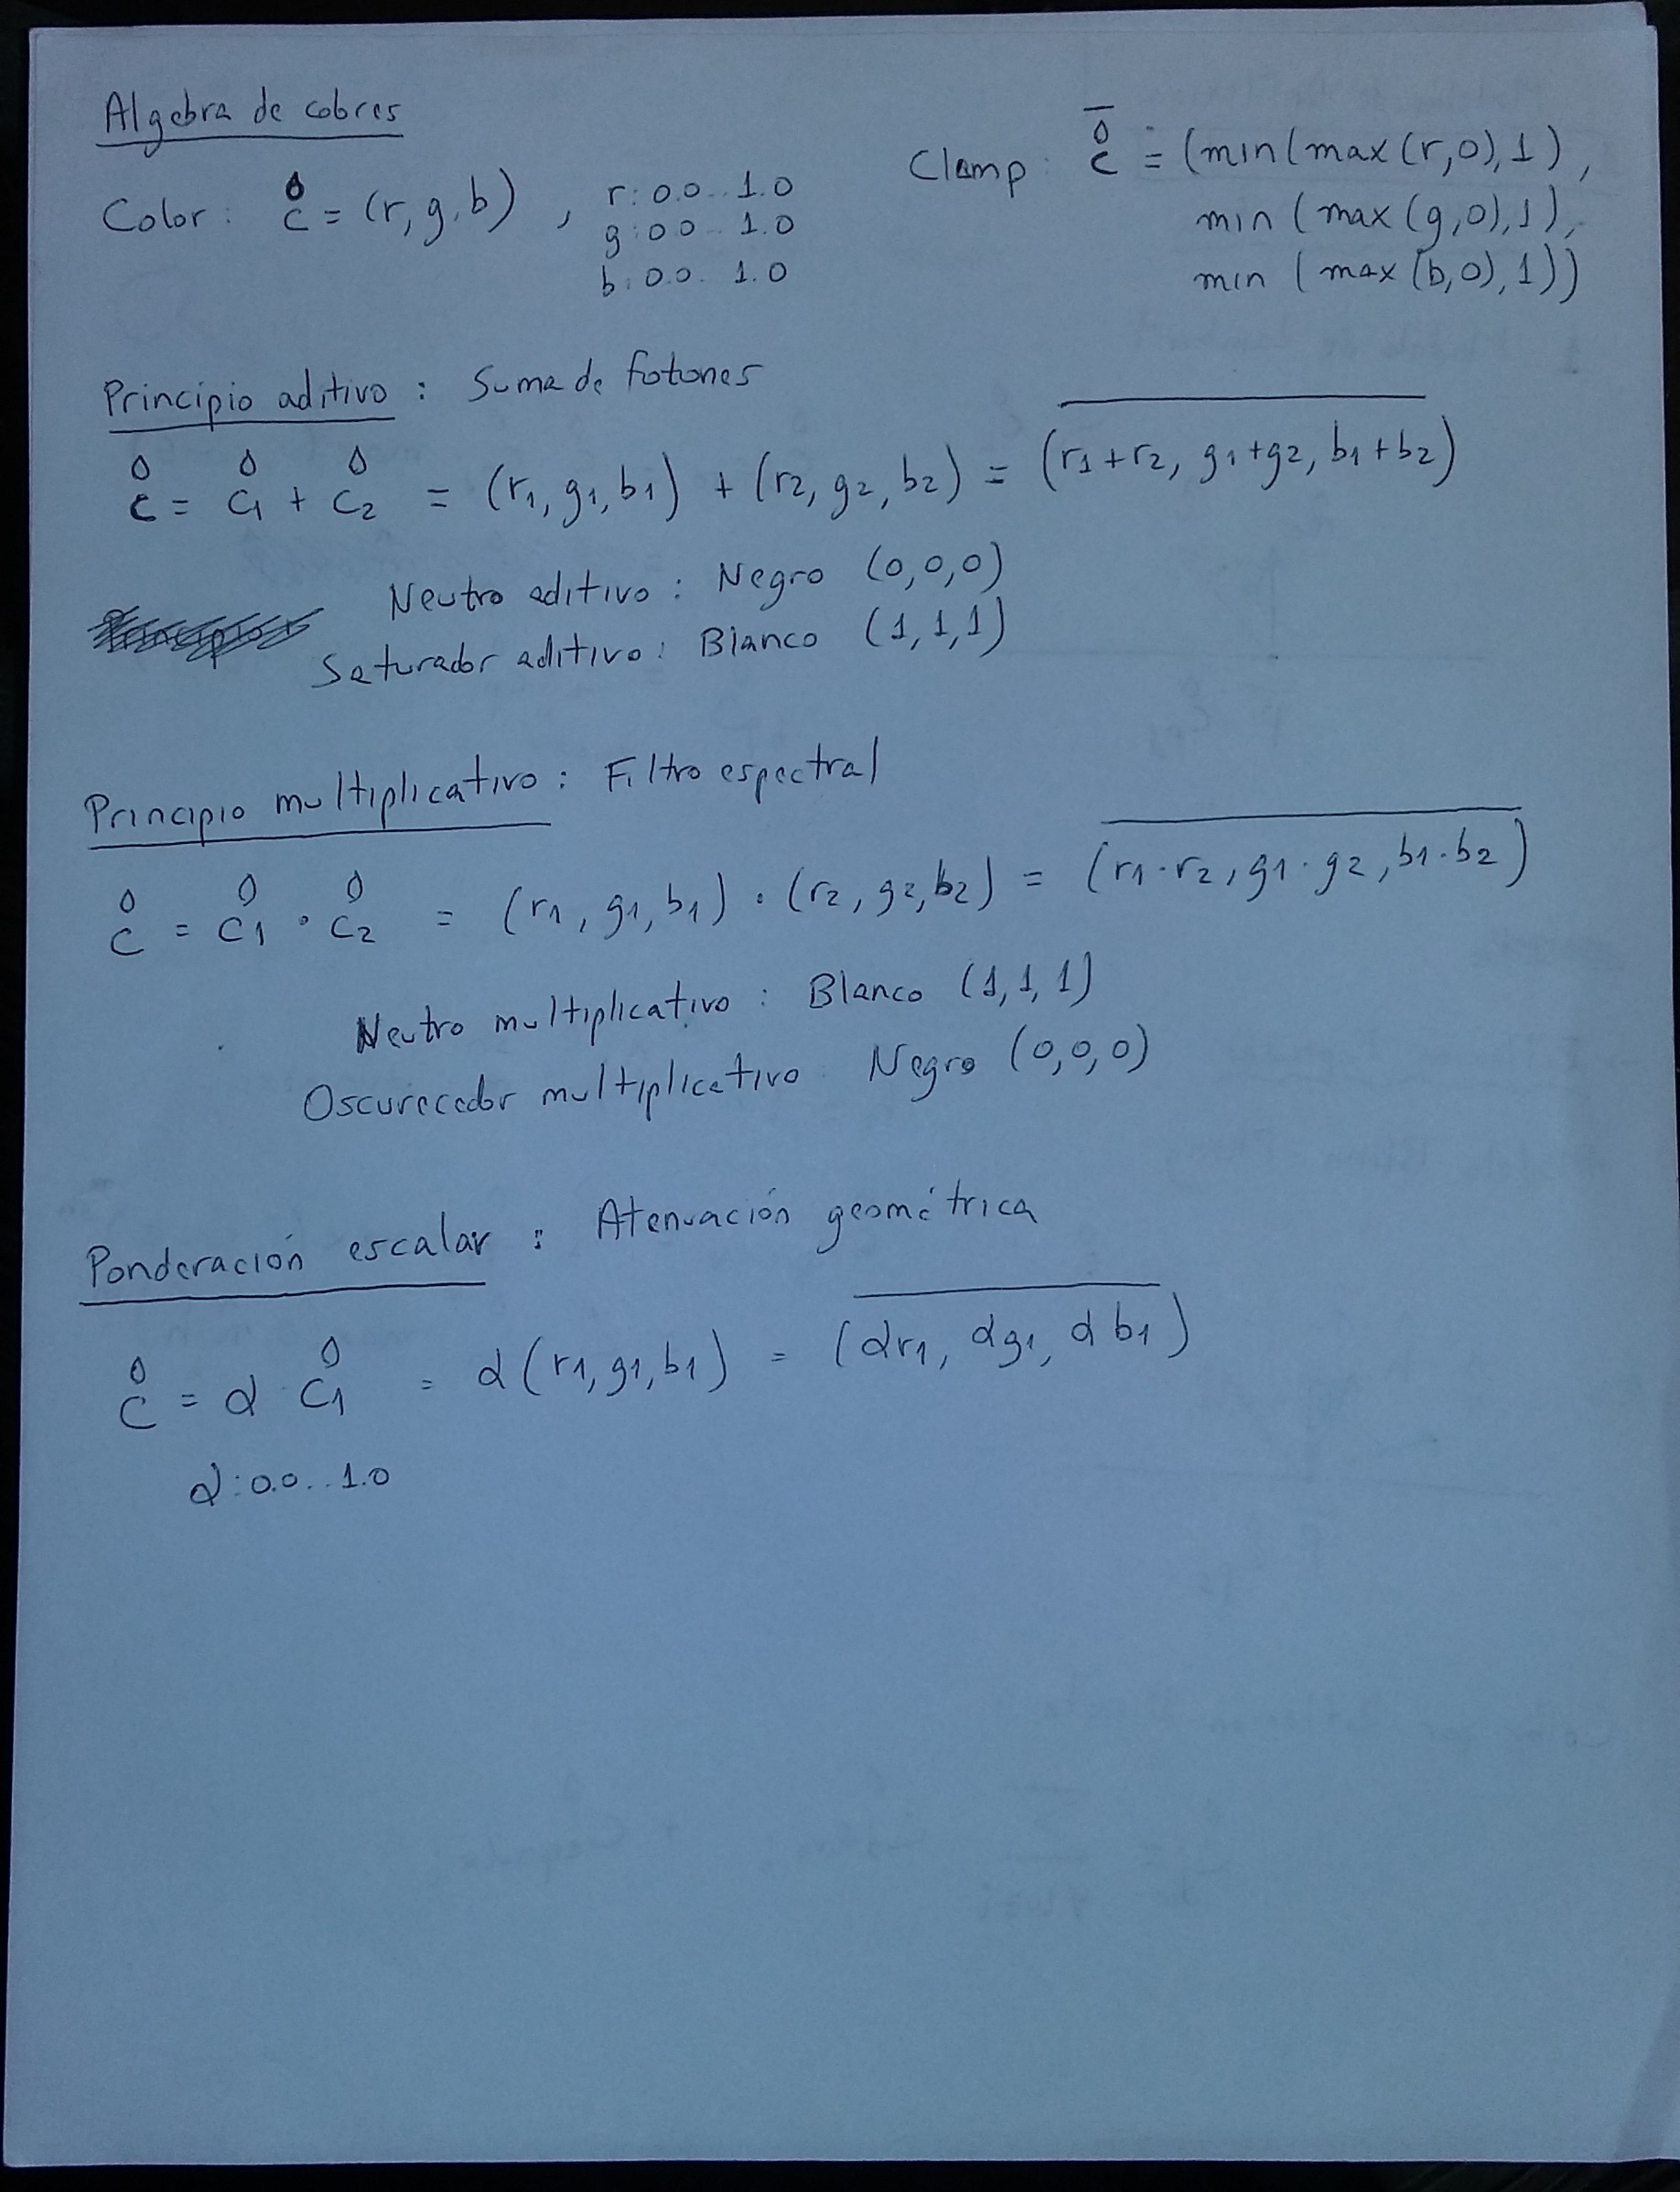 Algebra de colores
Color: c̊ = (r, g, b) , r: 0.0..1.0
g: 0.0..1.0
b: 0.0..1.0
Clamp: c̊̅ = (min(max(r,0),1),
min(max(g,0),1),
min(max(b,0),1))
Principio aditivo: Suma de fotones
c̊ = c̊1 + c̊2 = (r1, g1, b1) + (r2, g2, b2) = (r1+r2, g1+g2, b1+b2)
Neutro aditivo: Negro (0,0,0)
Saturador aditivo: Blanco (1,1,1)
Principio multiplicativo: Filtro espectral
c̊ = c̊1 · c̊2 = (r1, g1, b1) · (r2, g2, b2) = (r1·r2, g1·g2, b1·b2)
Neutro multiplicativo: Blanco (1,1,1)
Oscurecedor multiplicativo: Negro (0,0,0)
Ponderación escalar: Atenuación geométrica
c̊ = α · c̊1 = α(r1, g1, b1) = (αr1, αg1, αb1)
α: 0.0..1.0